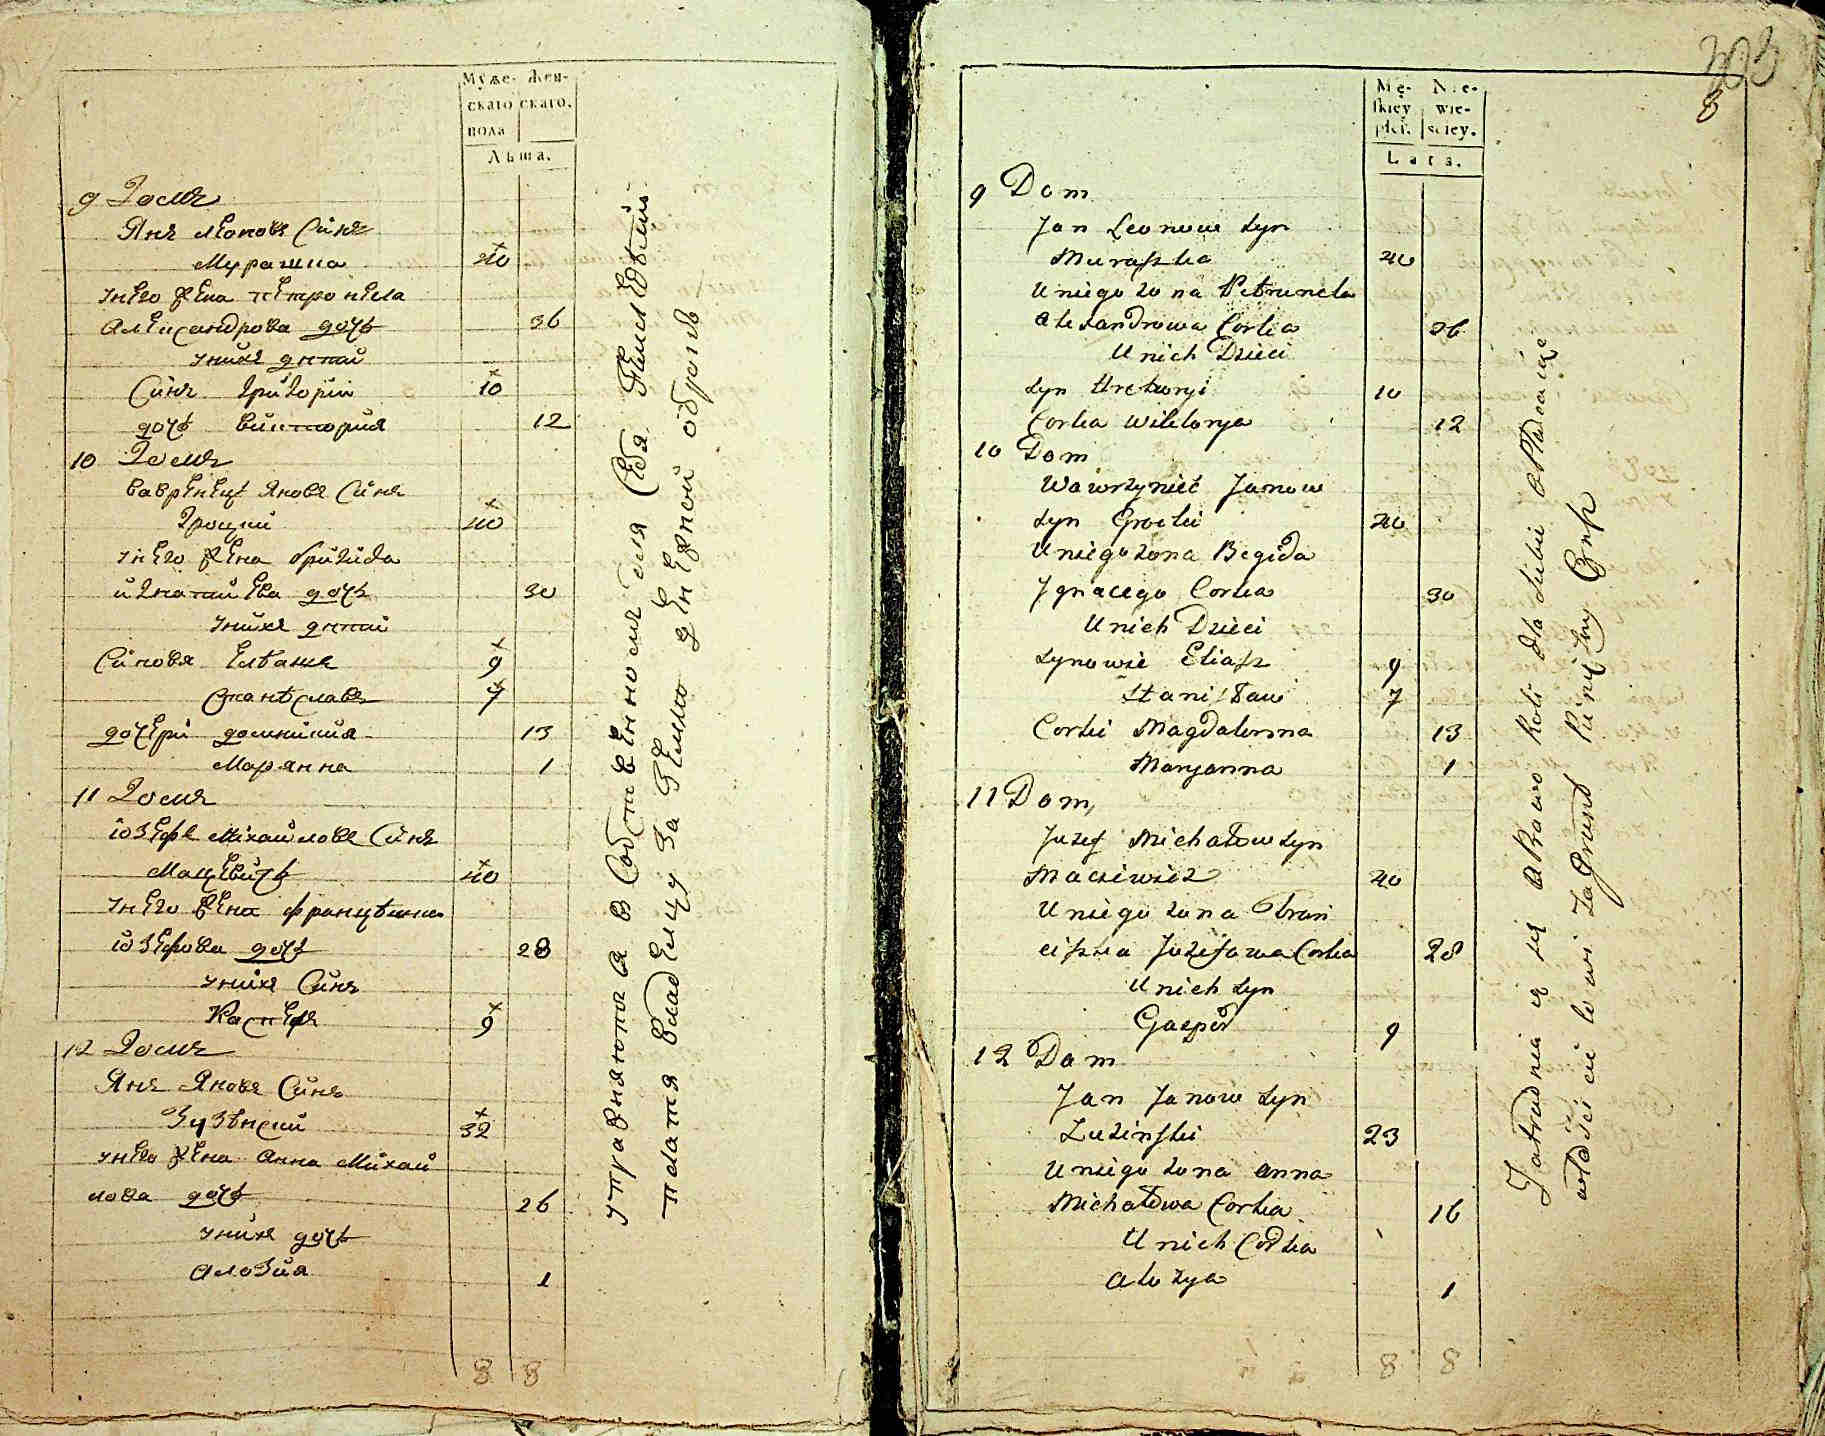 Муже- Жен-
скаго скаго.
пола
Лѣта.
9 Домъ
Янъ Леоновъ Синъ
Мурашка 40
унего жена петронеля
Александрова дочь 36
унихъ дѣти
Синъ Григорiй 10
дочь Викториiя 12
10 Домъ
Вавренецъ Яновъ Синъ
Гроцкiй 40
унего жена бригида
игнатиева дочь 30
унихъ дѣти
Синовя Елiашъ 9
Станѣславъ 7
дочери доминикiя 13
Марянна 1
11 Домъ
iозефъ Михайловъ Синъ
Мацевичъ 40
унего жена францѣшка
iозефова дочь 28
унихъ Синъ
Касперъ 9
12 Домъ
Янъ Яновъ Синъ
Зузѣнскiй 32
унего жена Анна Михай
лова дочь 26
унихъ дочь
Алозiя 1
8 8
упражняются в Собственномъ для Себя Земледѣлiй
платя Владелцу За Землю денежной оброкъ
303
8
Mę- Nie-
skiey wie-
płci. sciey.
Lata.
9 Dom
Jan Leonow Syn
Muraszka 40
U niego Zona Petrunela
Alexandrowa Corka 36
U nich Dzieci
Syn Hrehory 10
Corka Wiktorya 12
10 Dom
Wawrzyniec Janow
Syn Grocki 40
U niego Zona Begida
Jgnacego Corka 30
U nich Dzieci
Synowie Eliasz 9
Stanisław 7
Corki Magdalenna 13
Maryanna 1
11 Dom
Juzef Michałow Syn
Maciewicz 40
U niego Zona Fran
ciszka Juzefowa Corka 28
U nich Syn
Gasper 9
12 Dom
Jan Janow Syn
Zuzinski 23
U niego Zona Anna
Michałowa Corka 16
U nich Corka
Alozya 1
8 8
Zatrudnia ią się uprawo Roli dla Siebie opłacaiąc
właścicielowi za Grunt Pieniężny Czynsz